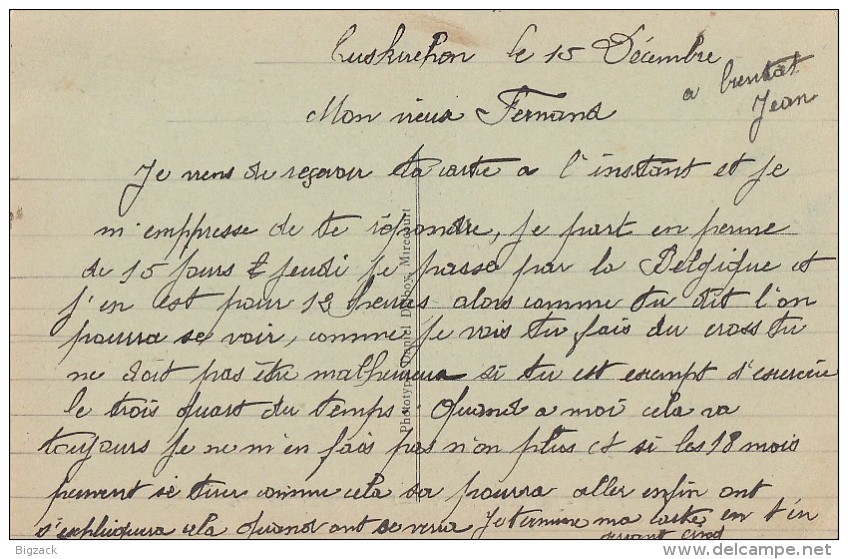 Euskirchen le 15 Décembre
a bientot
Jean
Mon vieux Fernand
Je viens de reçevoir ta carte a l'instant et je
m'emppresse de te répondre, je part en perme
de 15 jours jeudi je passe par la Belgique et
j'en est pour 12 heures alors comme tu dit l'on
pourra se voir, comme je vois tu fais du cross tu
ne doit pas être malheureux si tu est exempt d'exercice
le trois quart du temps. Quand a moi cela va
toujours je ne m'en fais pas non plus et si les 18 mois
peuvent se tirer comme cela sa pourra aller enfin ont
s'expliquera cela quand ont se verra Je termine ma carte en t'en
serrant cinq
Phototypie Daniel Delboy, Mirecourt
Bigzack
http://www.delcampe.net